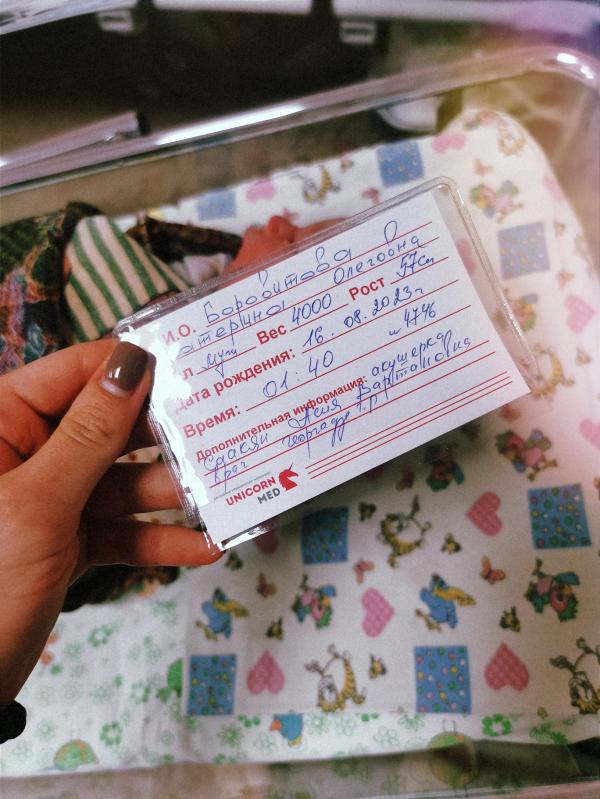 И.О. Боровитова
атерина Олеговна
л муж Вес 4000 Рост 57 см
Дата рождения: 16.08.2023г
Время: 01:40 4746
Дополнительная информация: акушерка
Саакян Асия Вартановна
врач Георгадзе
UNICORN
MED